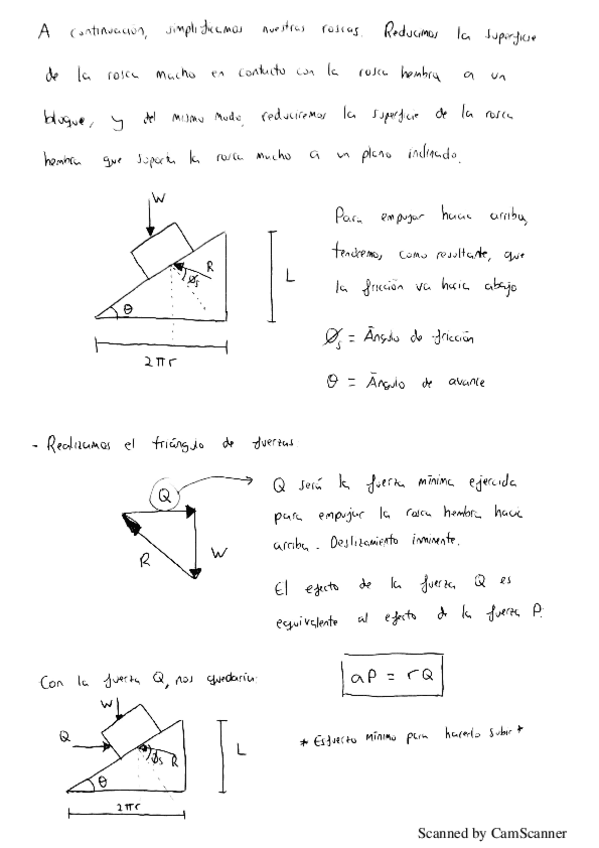 A continuación, simplificamos nuestras roscas. Reducimos la superficie
de la rosca macho en contacto con la rosca hembra a un
bloque, y del mismo modo, reduciremos la superficie de la rosca
hembra que soporta la rosca macho a un plano inclinado.
W
R
Øs
θ
L
2πr
Para empujar hacia arriba,
tendremos, como resultante, que
la fricción va hacia abajo
Øs = Ángulo de fricción
θ = Ángulo de avance
- Realizamos el triángulo de fuerzas:
Q
R
W
Q será la fuerza mínima ejercida
para empujar la rosca hembra hacia
arriba. Deslizamiento inminente.
El efecto de la fuerza Q es
equivalente al efecto de la fuerza P.
aP = rQ
Con la fuerza Q, nos quedaría:
W
Q
Øs
R
θ
L
2πr
* Esfuerzo mínimo para hacerlo subir *
Scanned by CamScanner